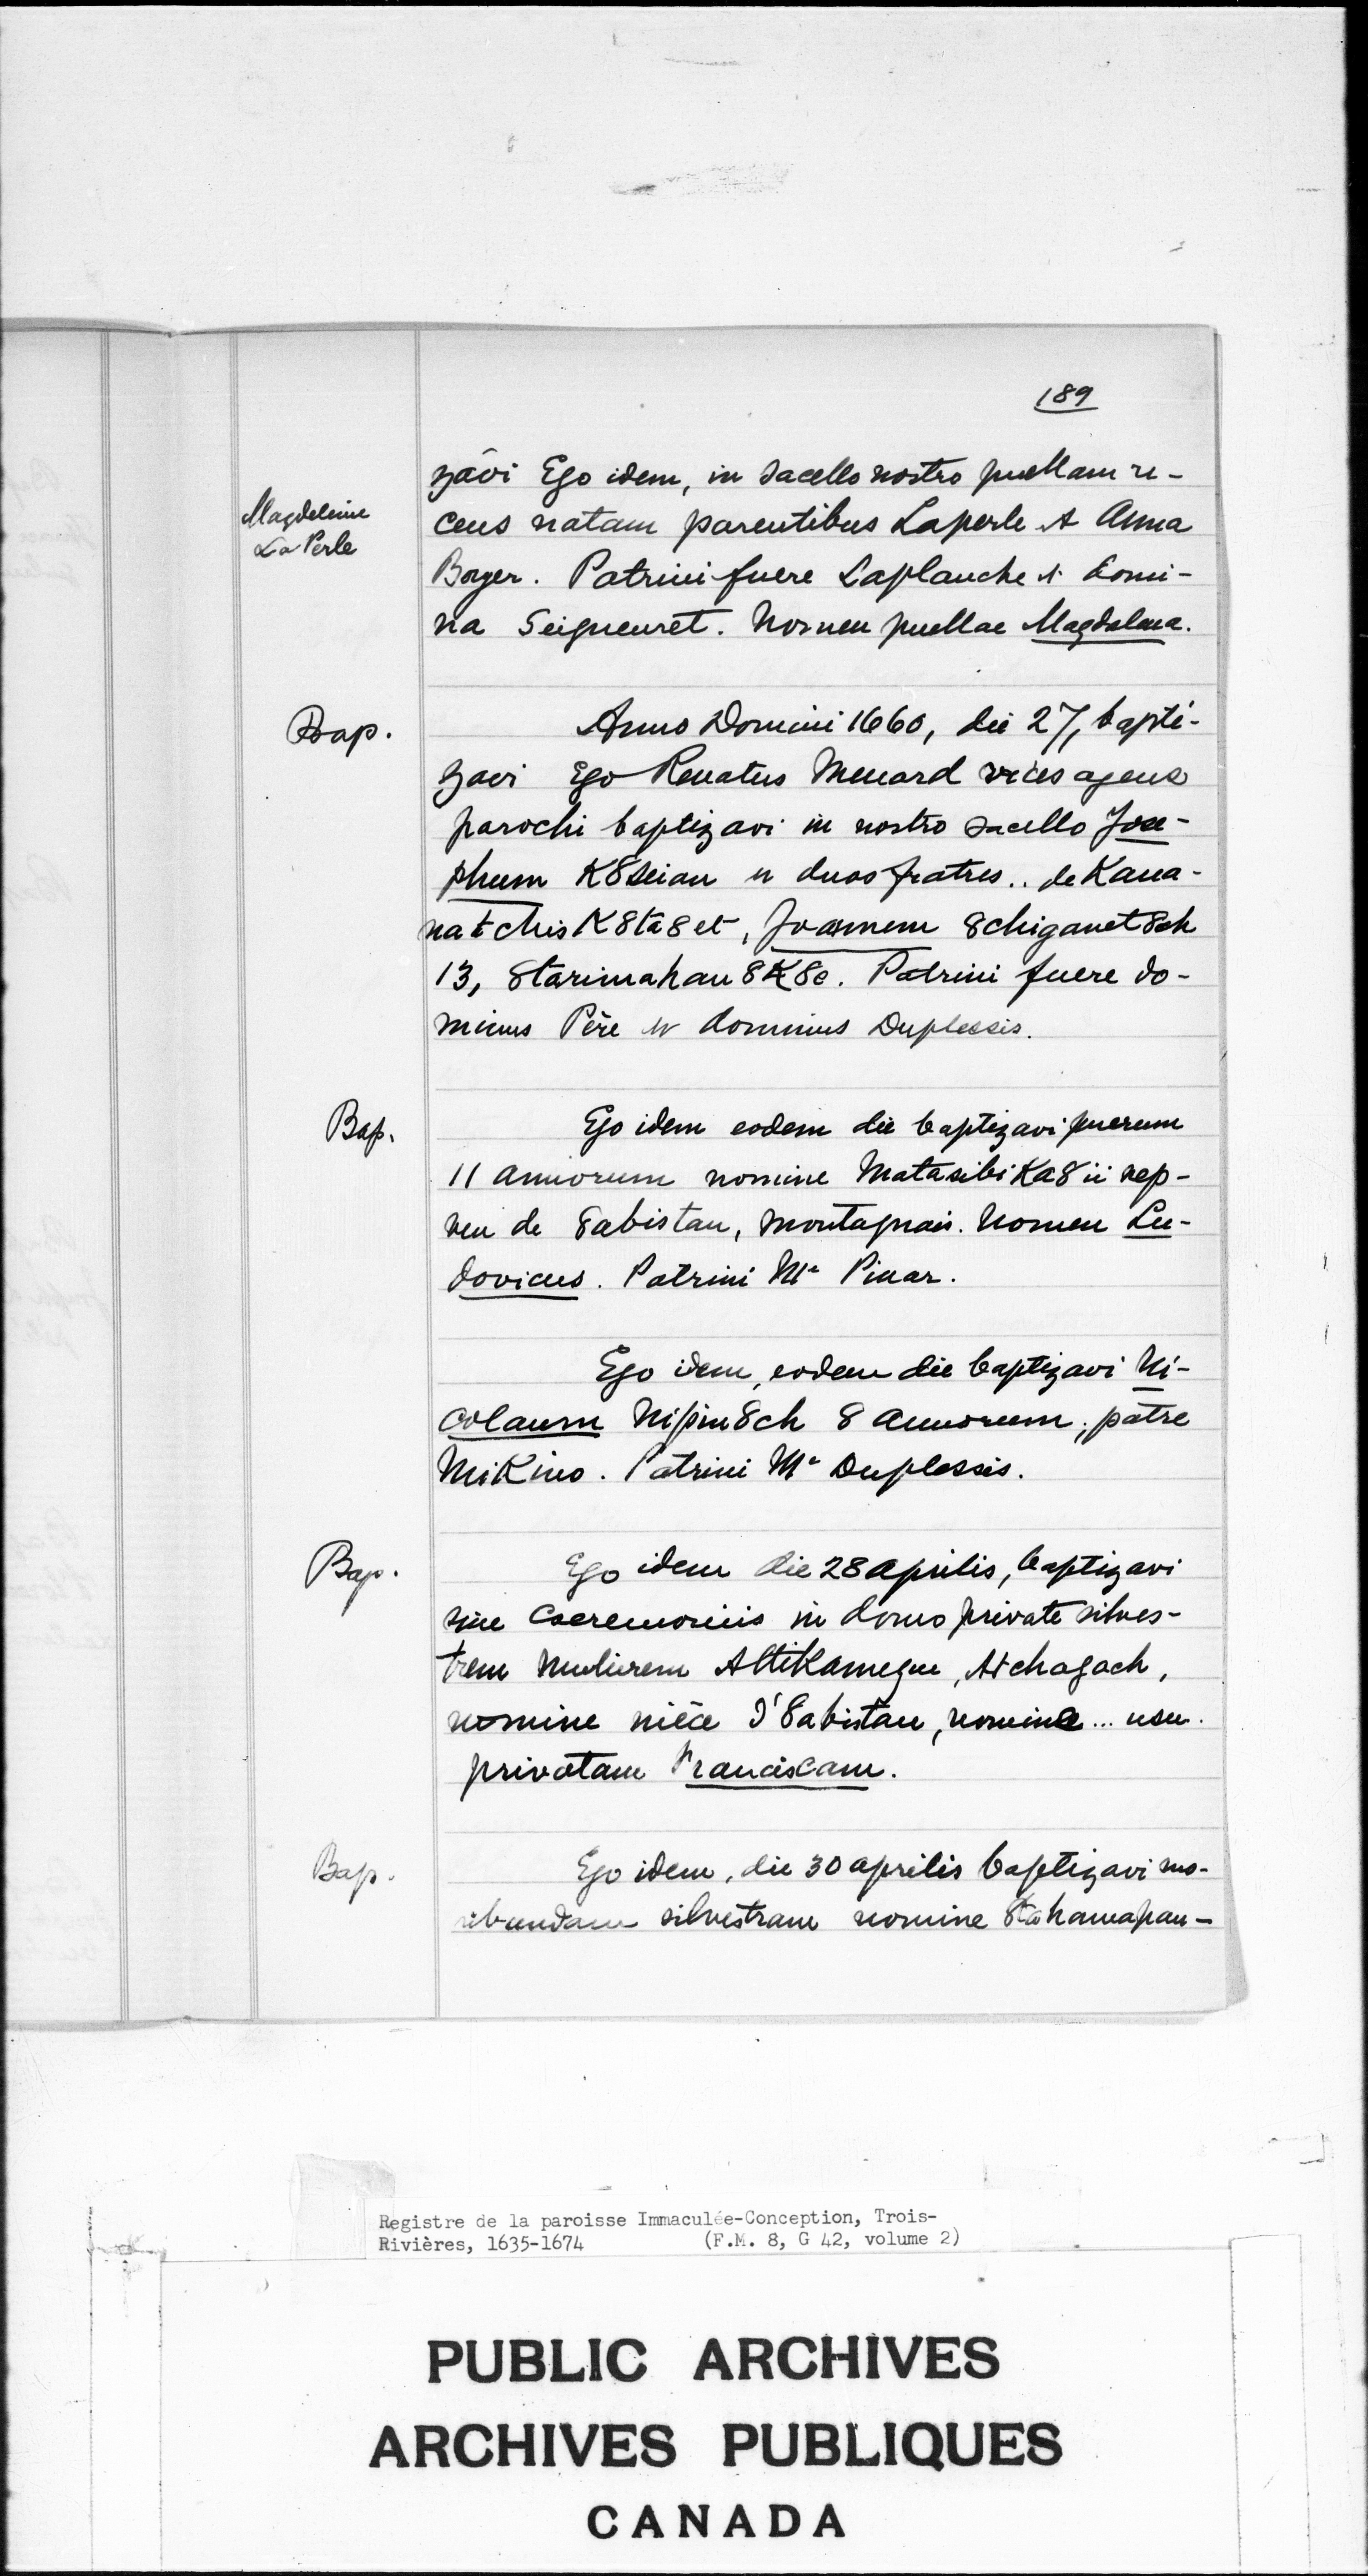 189
zavi Ego idem, in sacello nostro puellam re-
Magdeleine
La Perle
cens natam parentibus Laperle et Anna
Boyer. Patrini fuere Laplanche et domi-
na Seigneuret. Nomen puellae Magdalena.
Bap.
Anno Domini 1660, die 27, bapti-
zavi Ego Renatus Menard vices agens
parochi baptizavi in nostro sacello Jose-
phum K8seian et duos fratres.. de Kana-
natchisK8ta8et, Joannem 8chiganet8ch
13, 8tarimahan8K8e. Patrini fuere do-
minus Père et dominus Duplessis.
Bap.
Ego idem eodem die baptizavi puerum
11 annorum nomine MatasibiKa8ii nep-
veu de 8abistan, montagnais. Nomen Lu-
dovicus. Patrini Mr Pinar.
Ego idem, eodem die baptizavi Ni-
colaum Nipin8ch 8 annorum, patre
MiKino. Patrini Mr Duplessis.
Bap.
Ego idem die 28 aprilis, baptizavi
sine caeremoniis in domo private silves-
trem mulierem AttiKamegue, Atchagach,
nomine nièce d'8abistan, nomine... usu
privatam Franciscam.
Bap.
Ego idem, die 30 aprilis baptizavi mo-
ribundam silvestram nomine 8tahamapan-
Registre de la paroisse Immaculée-Conception, Trois-
Rivières, 1635-1674 (F.M. 8, G 42, volume 2)
PUBLIC ARCHIVES
ARCHIVES PUBLIQUES
CANADA